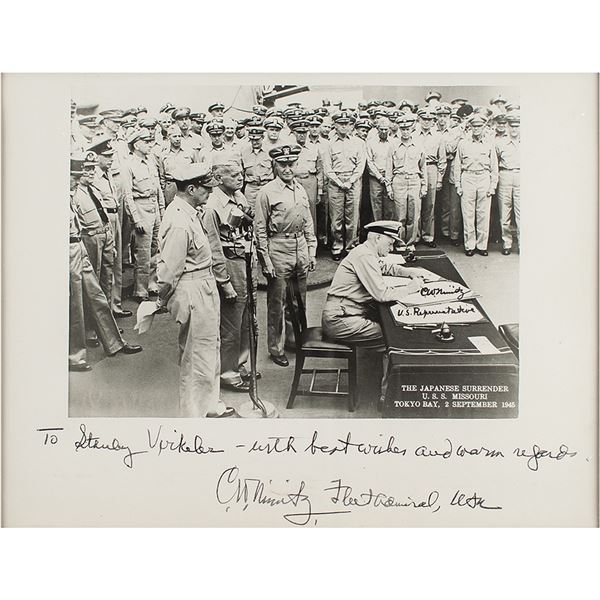 CWNimitz
U.S. Representative
THE JAPANESE SURRENDER
U. S. S. MISSOURI
TOKYO BAY, 2 SEPTEMBER 1945
To Stanley - with best wishes and warm regards.
CWNimitz, Fleet Admiral, USN